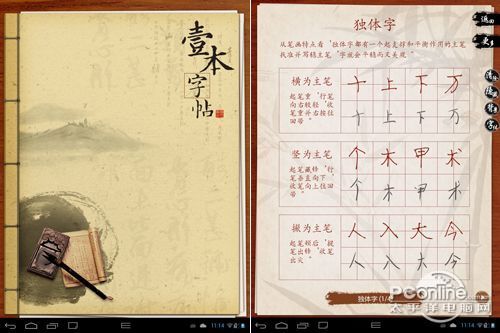 壹本字帖
11:14
独体字
从笔画特点看，独体字都有一个起支撑和平衡作用的主笔
找准并写稳主笔，字就会平稳而又美观
横为主笔
起笔重，行笔
向右较轻，收
笔重并右按往
回带
十 上 下 万
十 上 下 万
竖为主笔
起笔藏锋，行
笔垂直向下，
收笔向上往回
带
个 木 甲 术
个 木 甲 术
撇为主笔
起笔顿后，提
笔出锋，收笔
出尖
人 入 大 今
人 入 大 今
独体字 (1/4)
返回
更
11:14
PConline
太平洋电脑网